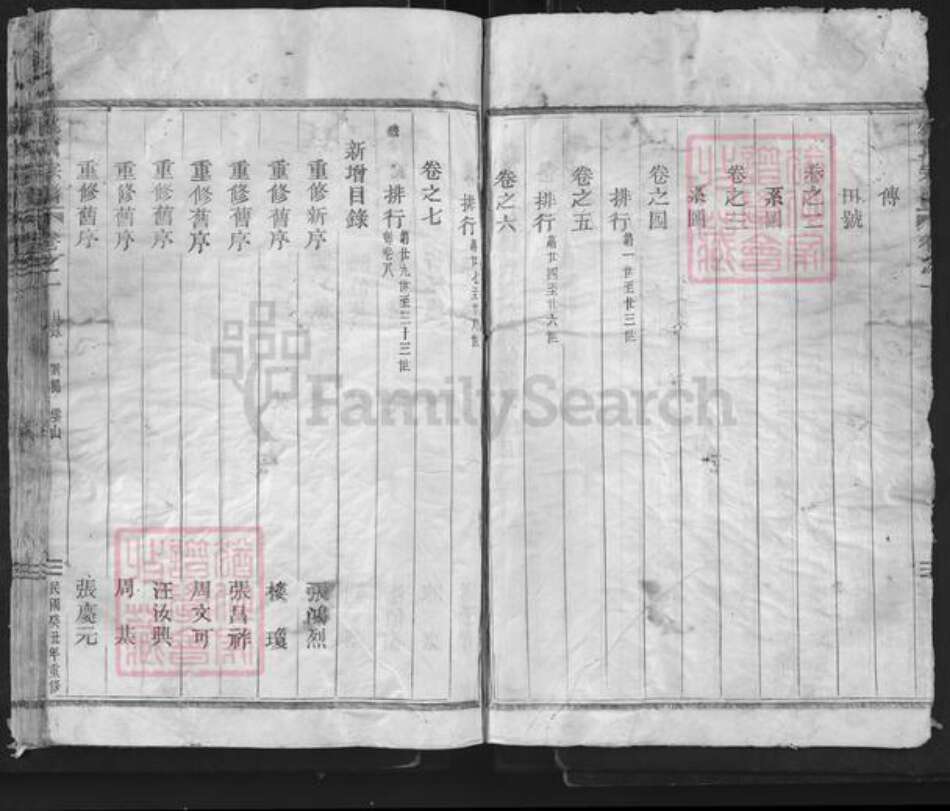 傳
卷之二
系圖
卷之三
系圖
卷之四
排行 第一世至廿三世
卷之五
排行 第廿四至廿六世
卷之六
排行
卷之七
排行 第廿九世至三十三世
新增目錄
重修新序 張鴻烈
重修舊序 樓瓊
重修舊序 張昌祚
重修舊序 周文可
重修舊序 汪汝興
重修舊序 周
重修舊序 張慶元
民國癸丑年重修
FamilySearch